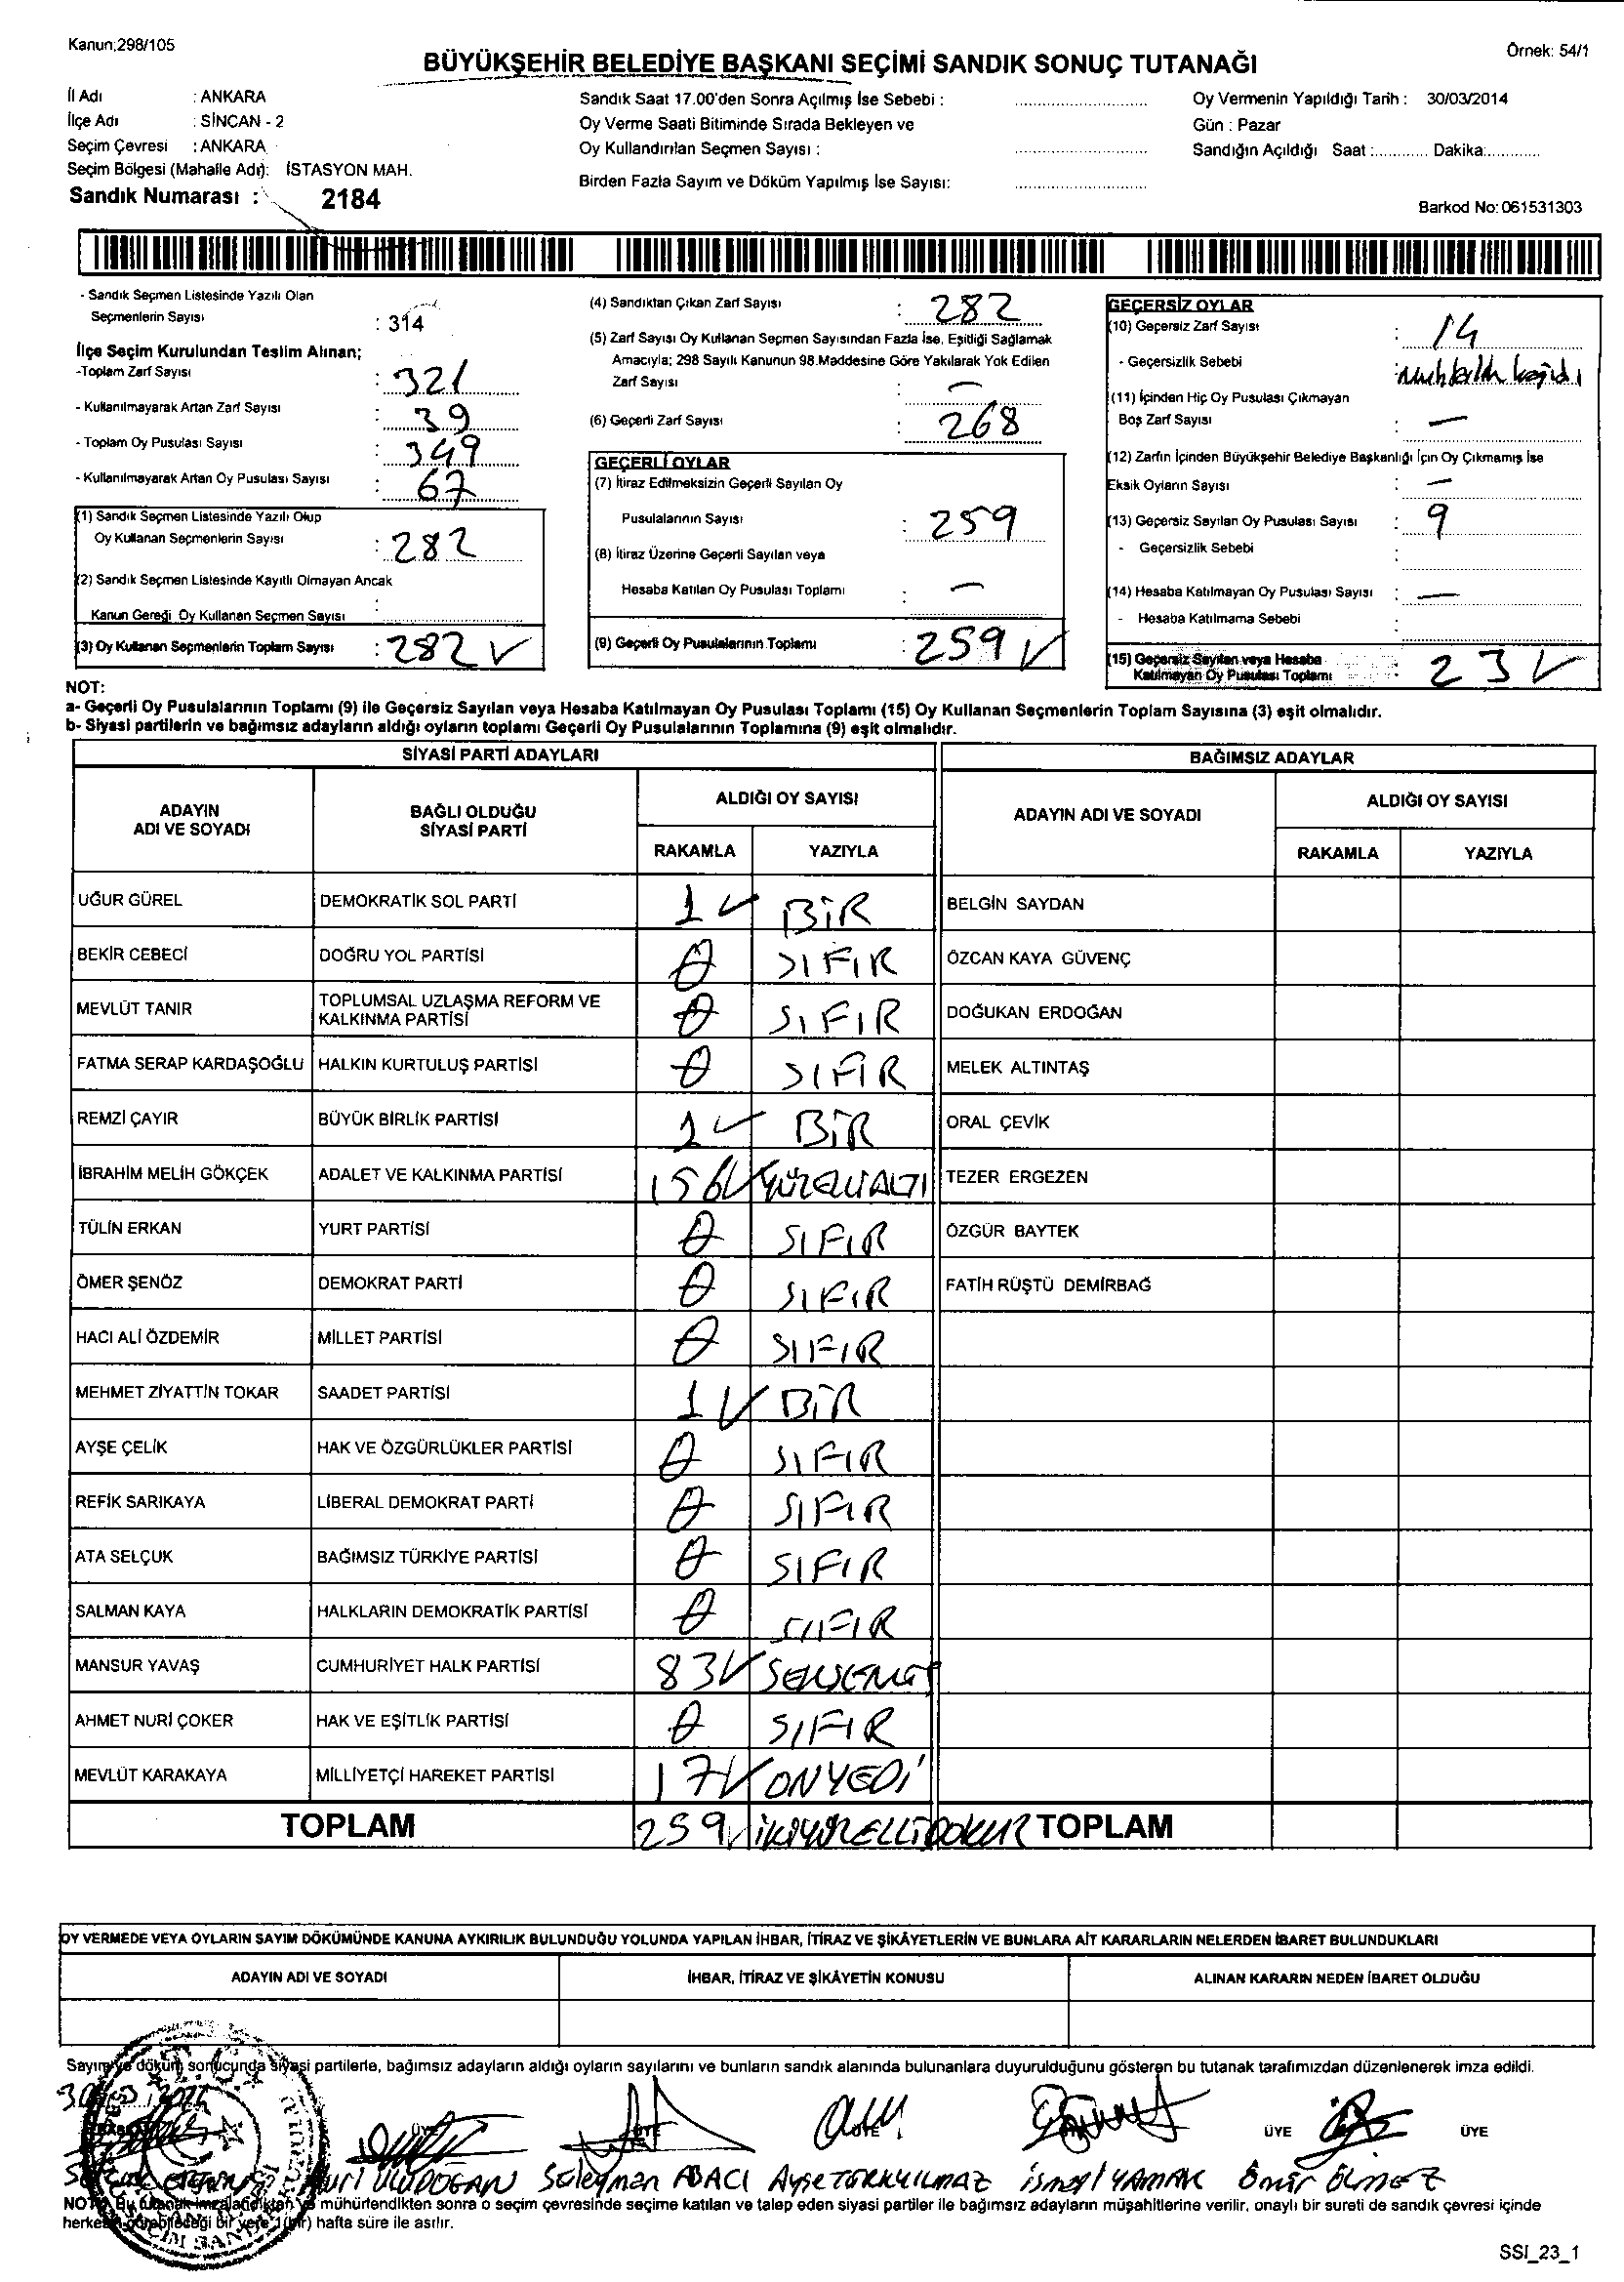 Kanun;298/105
Örnek: 54/1
BÜYÜKŞEHİR BELEDİYE BAŞKANI SEÇİMİ SANDIK SONUÇ TUTANAĞI
İl Adı : ANKARA
İlçe Adı : SİNCAN - 2
Seçim Çevresi : ANKARA
Seçim Bölgesi (Mahalle Adı): İSTASYON MAH.
Sandık Numarası : 2184
Sandık Saat 17.00'den Sonra Açılmış İse Sebebi :
Oy Verme Saati Bitiminde Sırada Bekleyen ve
Oy Kullandırılan Seçmen Sayısı :
Birden Fazla Sayım ve Döküm Yapılmış İse Sayısı:
Oy Vermenin Yapıldığı Tarih : 30/03/2014
Gün : Pazar
Sandığın Açıldığı Saat :............ Dakika:............
Barkod No: 061531303
- Sandık Seçmen Listesinde Yazılı Olan
Seçmenlerin Sayısı : 314
İlçe Seçim Kurulundan Teslim Alınan;
-Toplam Zarf Sayısı : 321
- Kullanılmayarak Artan Zarf Sayısı : 39
- Toplam Oy Pusulası Sayısı : 349
- Kullanılmayarak Artan Oy Pusulası Sayısı : 67
(1) Sandık Seçmen Listesinde Yazılı Olup
Oy Kullanan Seçmenlerin Sayısı : 282
(2) Sandık Seçmen Listesinde Kayıtlı Olmayan Ancak
Kanun Gereği Oy Kullanan Seçmen Sayısı :
(3) Oy Kullanan Seçmenlerin Toplam Sayısı : 282 ✓
(4) Sandıktan Çıkan Zarf Sayısı : 282
(5) Zarf Sayısı Oy Kullanan Seçmen Sayısından Fazla İse, Eşitliği Sağlamak
Amacıyla; 298 Sayılı Kanunun 98.Maddesine Göre Yakılarak Yok Edilen
Zarf Sayısı : —
(6) Geçerli Zarf Sayısı : 268
GEÇERLİ OYLAR
(7) İtiraz Edilmeksizin Geçerli Sayılan Oy
Pusulalarının Sayısı : 259
(8) İtiraz Üzerine Geçerli Sayılan veya
Hesaba Katılan Oy Pusulası Toplamı : —
(9) Geçerli Oy Pusulalarının Toplamı : 259 ✓
GEÇERSİZ OYLAR
(10) Geçersiz Zarf Sayısı : 14
- Geçersizlik Sebebi
(11) İçinden Hiç Oy Pusulası Çıkmayan
Boş Zarf Sayısı : —
(12) Zarfın İçinden Büyükşehir Belediye Başkanlığı İçin Oy Çıkmamış İse
Eksik Oyların Sayısı : —
(13) Geçersiz Sayılan Oy Pusulası Sayısı : 9
- Geçersizlik Sebebi :
(14) Hesaba Katılmayan Oy Pusulası Sayısı : —
- Hesaba Katılmama Sebebi :
(15) Geçersiz Sayılan veya Hesaba
Katılmayan Oy Pusulası Toplamı : 23 ✓
NOT:
a- Geçerli Oy Pusulalarının Toplamı (9) ile Geçersiz Sayılan veya Hesaba Katılmayan Oy Pusulası Toplamı (15) Oy Kullanan Seçmenlerin Toplam Sayısına (3) eşit olmalıdır.
b- Siyasi partilerin ve bağımsız adayların aldığı oyların toplamı Geçerli Oy Pusulalarının Toplamına (9) eşit olmalıdır.
SİYASİ PARTİ ADAYLARI BAĞIMSIZ ADAYLAR
ADAYIN ADI VE SOYADI BAĞLI OLDUĞU SİYASİ PARTİ ALDIĞI OY SAYISI ADAYIN ADI VE SOYADI ALDIĞI OY SAYISI
RAKAMLA YAZIYLA RAKAMLA YAZIYLA
UĞUR GÜREL DEMOKRATİK SOL PARTİ 1 ✓ BİR BELGİN SAYDAN
BEKİR CEBECİ DOĞRU YOL PARTİSİ 0 SIFIR ÖZCAN KAYA GÜVENÇ
MEVLÜT TANIR TOPLUMSAL UZLAŞMA REFORM VE KALKINMA PARTİSİ 0 SIFIR DOĞUKAN ERDOĞAN
FATMA SERAP KARDAŞOĞLU HALKIN KURTULUŞ PARTİSİ 0 SIFIR MELEK ALTINTAŞ
REMZİ ÇAYIR BÜYÜK BİRLİK PARTİSİ 1 ✓ BİR ORAL ÇEVİK
İBRAHİM MELİH GÖKÇEK ADALET VE KALKINMA PARTİSİ 156 ✓ YÜZELLİALTI TEZER ERGEZEN
TÜLİN ERKAN YURT PARTİSİ 0 SIFIR ÖZGÜR BAYTEK
ÖMER ŞENÖZ DEMOKRAT PARTİ 0 SIFIR FATİH RÜŞTÜ DEMİRBAĞ
HACI ALİ ÖZDEMİR MİLLET PARTİSİ 0 SIFIR
MEHMET ZİYATTİN TOKAR SAADET PARTİSİ 1 ✓ BİR
AYŞE ÇELİK HAK VE ÖZGÜRLÜKLER PARTİSİ 0 SIFIR
REFİK SARIKAYA LİBERAL DEMOKRAT PARTİ 0 SIFIR
ATA SELÇUK BAĞIMSIZ TÜRKİYE PARTİSİ 0 SIFIR
SALMAN KAYA HALKLARIN DEMOKRATİK PARTİSİ 0 SIFIR
MANSUR YAVAŞ CUMHURİYET HALK PARTİSİ 83 ✓
AHMET NURİ ÇOKER HAK VE EŞİTLİK PARTİSİ 0 SIFIR
MEVLÜT KARAKAYA MİLLİYETÇİ HAREKET PARTİSİ 17 ✓ ONYEDİ
TOPLAM 259 ✓ İKİYÜZELLİDOKUZ TOPLAM
OY VERMEDE VEYA OYLARIN SAYIM DÖKÜMÜNDE KANUNA AYKIRILIK BULUNDUĞU YOLUNDA YAPILAN İHBAR, İTİRAZ VE ŞİKÂYETLERİN VE BUNLARA AİT KARARLARIN NELERDEN İBARET BULUNDUKLARI
ADAYIN ADI VE SOYADI İHBAR, İTİRAZ VE ŞİKÂYETİN KONUSU ALINAN KARARIN NEDEN İBARET OLDUĞU
Sayım ve döküm sonucunda siyasi partilerle, bağımsız adayların aldığı oyların sayılarını ve bunların sandık alanında bulunanlara duyurulduğunu gösteren bu tutanak tarafımızdan düzenlenerek imza edildi.
ÜYE ÜYE
Nuri ULUDOĞAN Süleyman ABACI Ayşe TÜRKYILMAZ İsmail YAMAK Ömür ÖLMEZ
NOT: Bu tutanak imzalandıktan ve mühürlendikten sonra o seçim çevresinde seçime katılan ve talep eden siyasi partiler ile bağımsız adayların müşahitlerine verilir, onaylı bir sureti de sandık çevresi içinde
herkesin görebileceği bir yere 1(bir) hafta süre ile asılır.
SSI_23_1